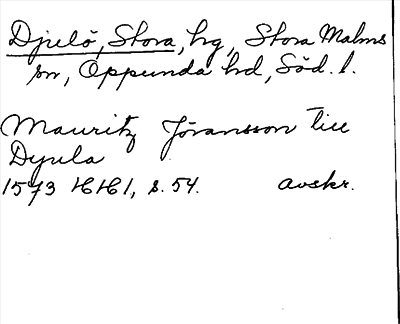 Djulö, Stora, hg, Stora Malms
sn, Oppunda hd, Söd. l.
Mauritz Jöransson till
Dyula
1573 HH1, s. 54. avskr.